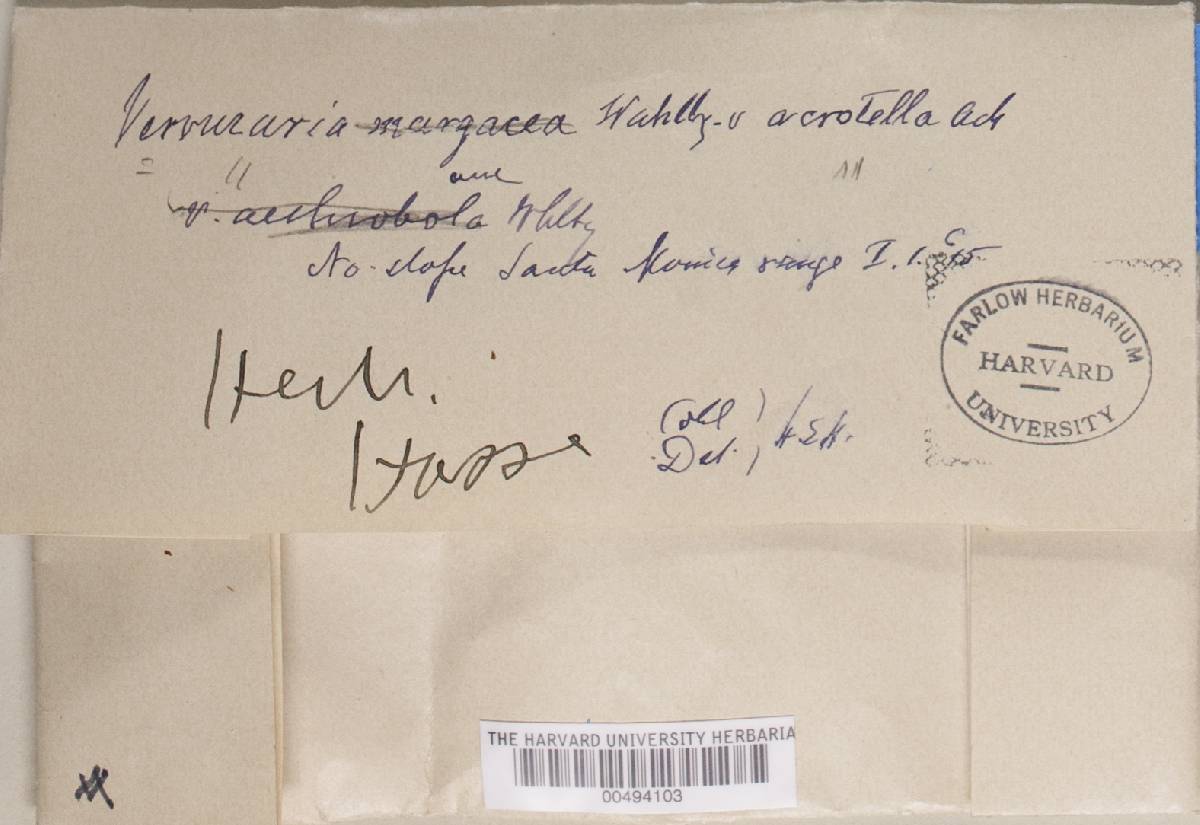 Verrucaria margacea Wahlbg. v acrotella Ach
v. aethiobola Whlbg
No. slope Santa Monica range I. 1. 15
FARLOW HERBARIUM
HARVARD
UNIVERSITY
Herb.
Hasse
Coll
Det. H.E.H.
THE HARVARD UNIVERSITY HERBARIA
00494103